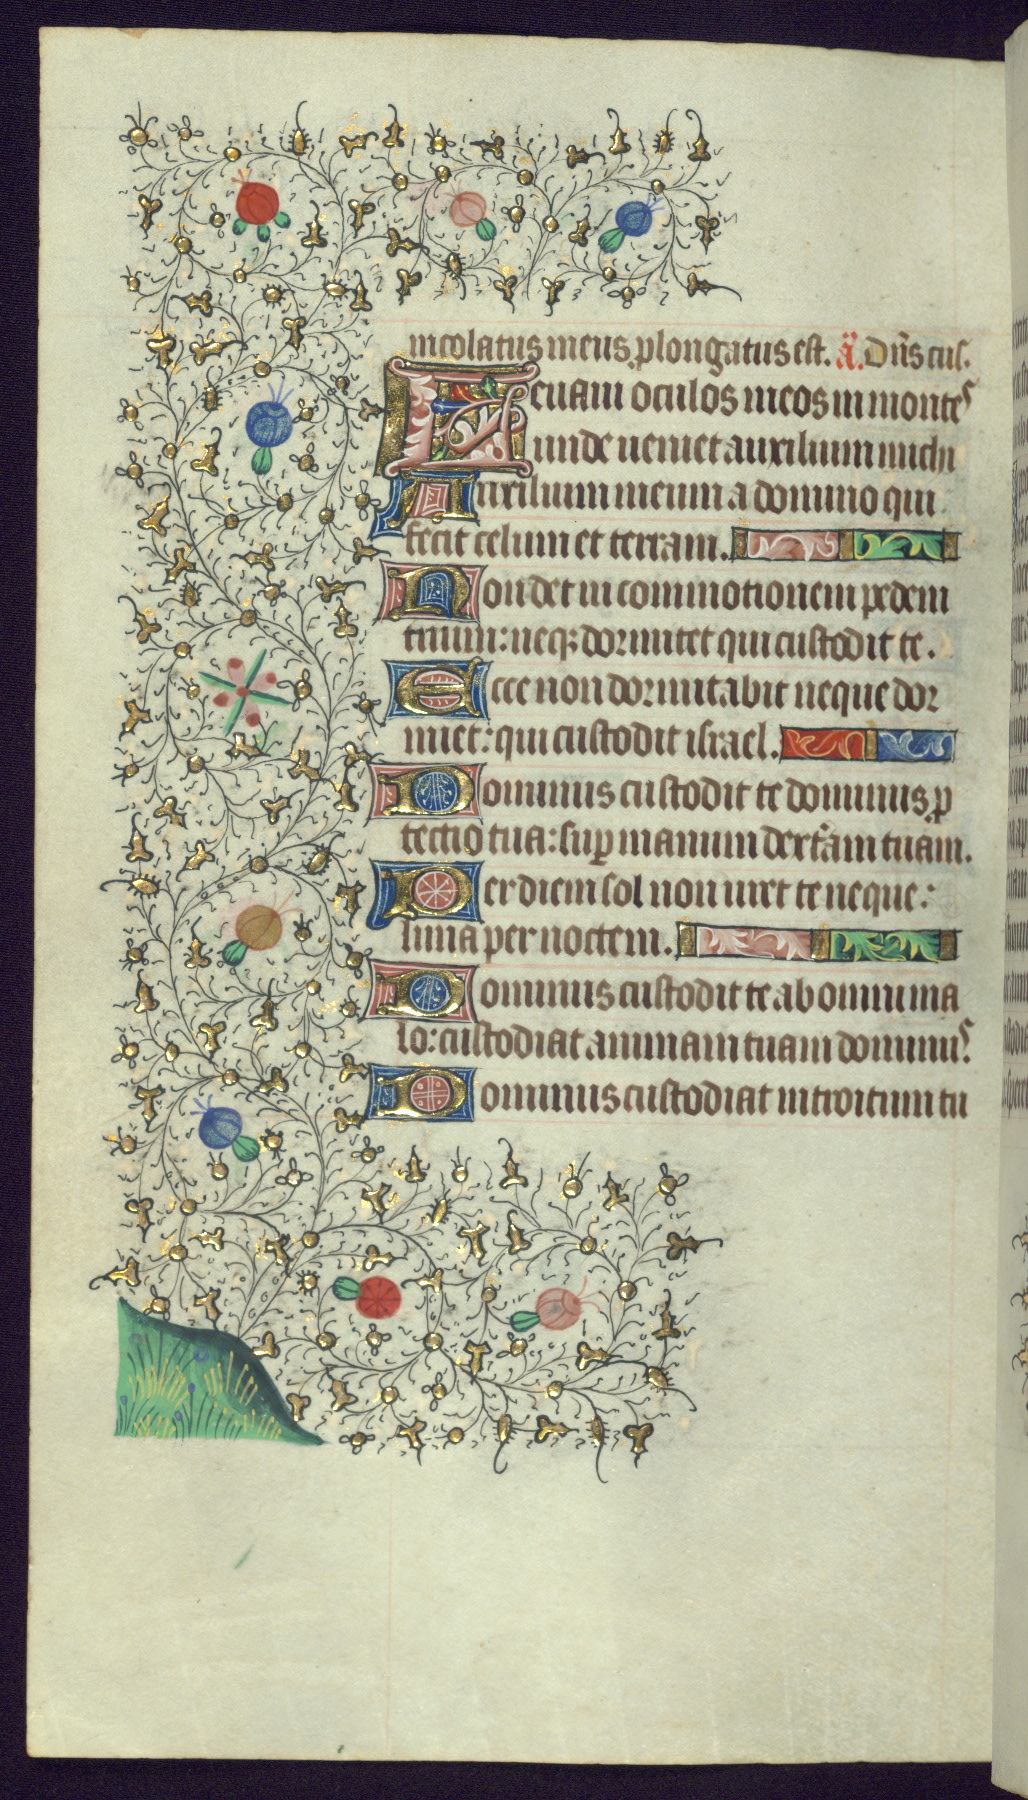 incolatus meus ꝓlongatus est. a᷃. Dn̄s cus.
Leuaui oculos meos in montes
unde ueniet auxilium michi
Auxilium meum a domino qui
fecit celum et terram.
Non det in commotionem pedem
tuum: neqꝫ dormitet qui custodit te.
Ecce non dormitabit neque dor
miet: qui custodit israel.
Dominus custodit te dominus ꝓ
tectio tua: suꝑ manum dext̃am tuam.
Per diem sol non uret te neque:
luna per noctem.
Dominus custodit te ab omni ma
lo: custodiat animam tuam dominus
Dominus custodiat introitum tu